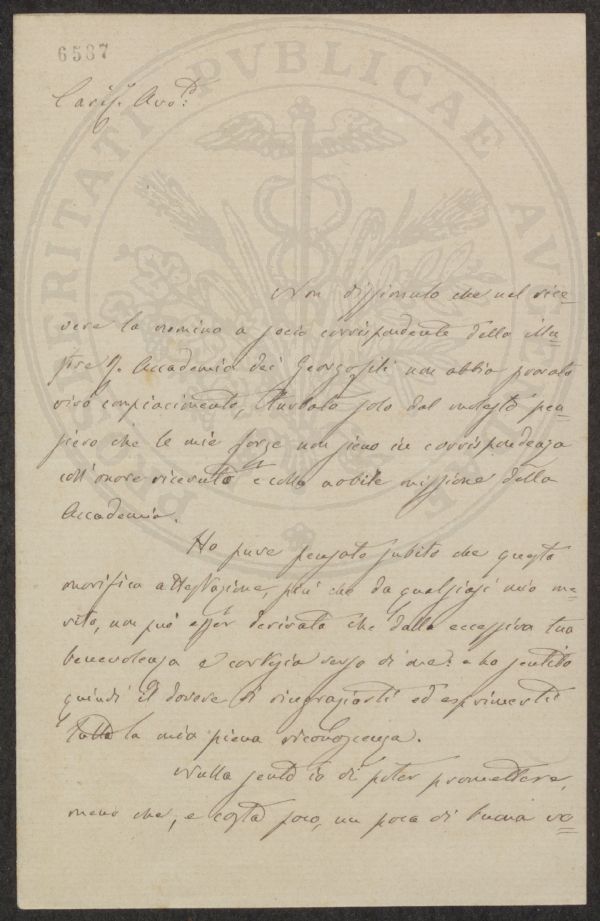 6587
PROSPERITATI PVBLICAE AVGENDAE
Cariss. Avvo:
Non dissimulo che nel rice=
vere la nomina a socio corrispondente della Illu=
stre R. Accademia dei Georgofili non abbia provato
vivo compiacimento, turbato solo dal molesto pen=
siero che le mie forze non sieno in corrispondenza
coll'onore ricevuto e colla nobile missione della
Accademia.
Ho pure pensato subito che questa
onorifica attestazione, più che da qualsiasi mio me=
rito, non può esser derivata che dalla eccessiva tua
benevolenza e cortesia verso di me: e ho sentito
quindi il dovere di ringraziarti ed esprimerti
tutta la mia piena riconoscenza.
Nulla sento io di poter promettere,
meno che, e costa poco, un poca di buona vo=